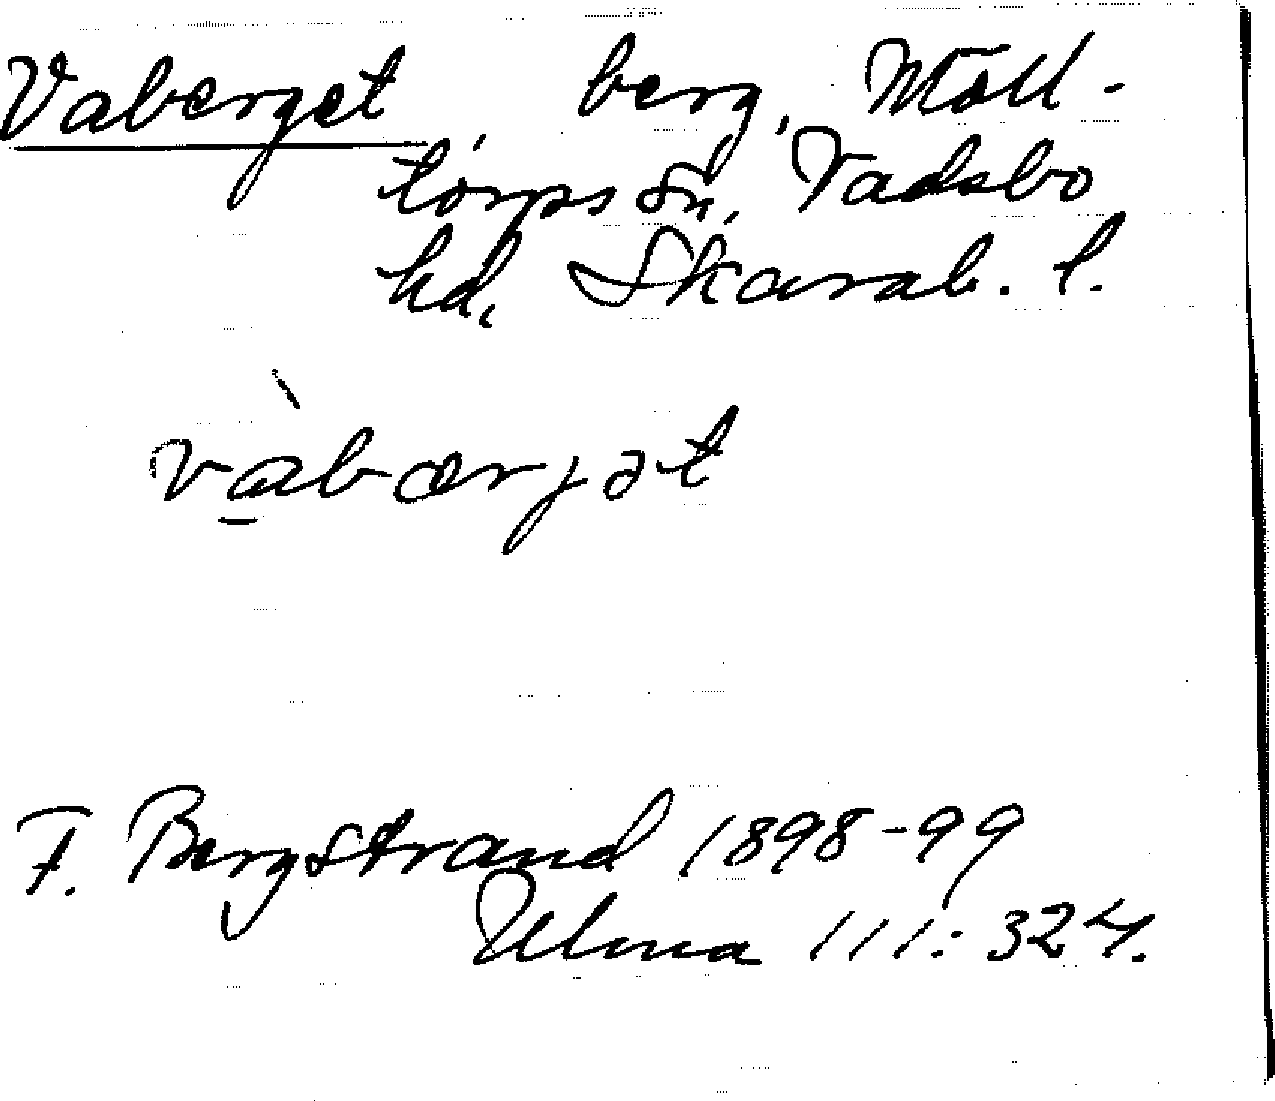 Vaberget, berg, Möll-
torps sn, Vadsbo
hd, Skarab. l.
v̀a̲bærjət
F. Bergstrand 1898-99
Ulma 111: 324.